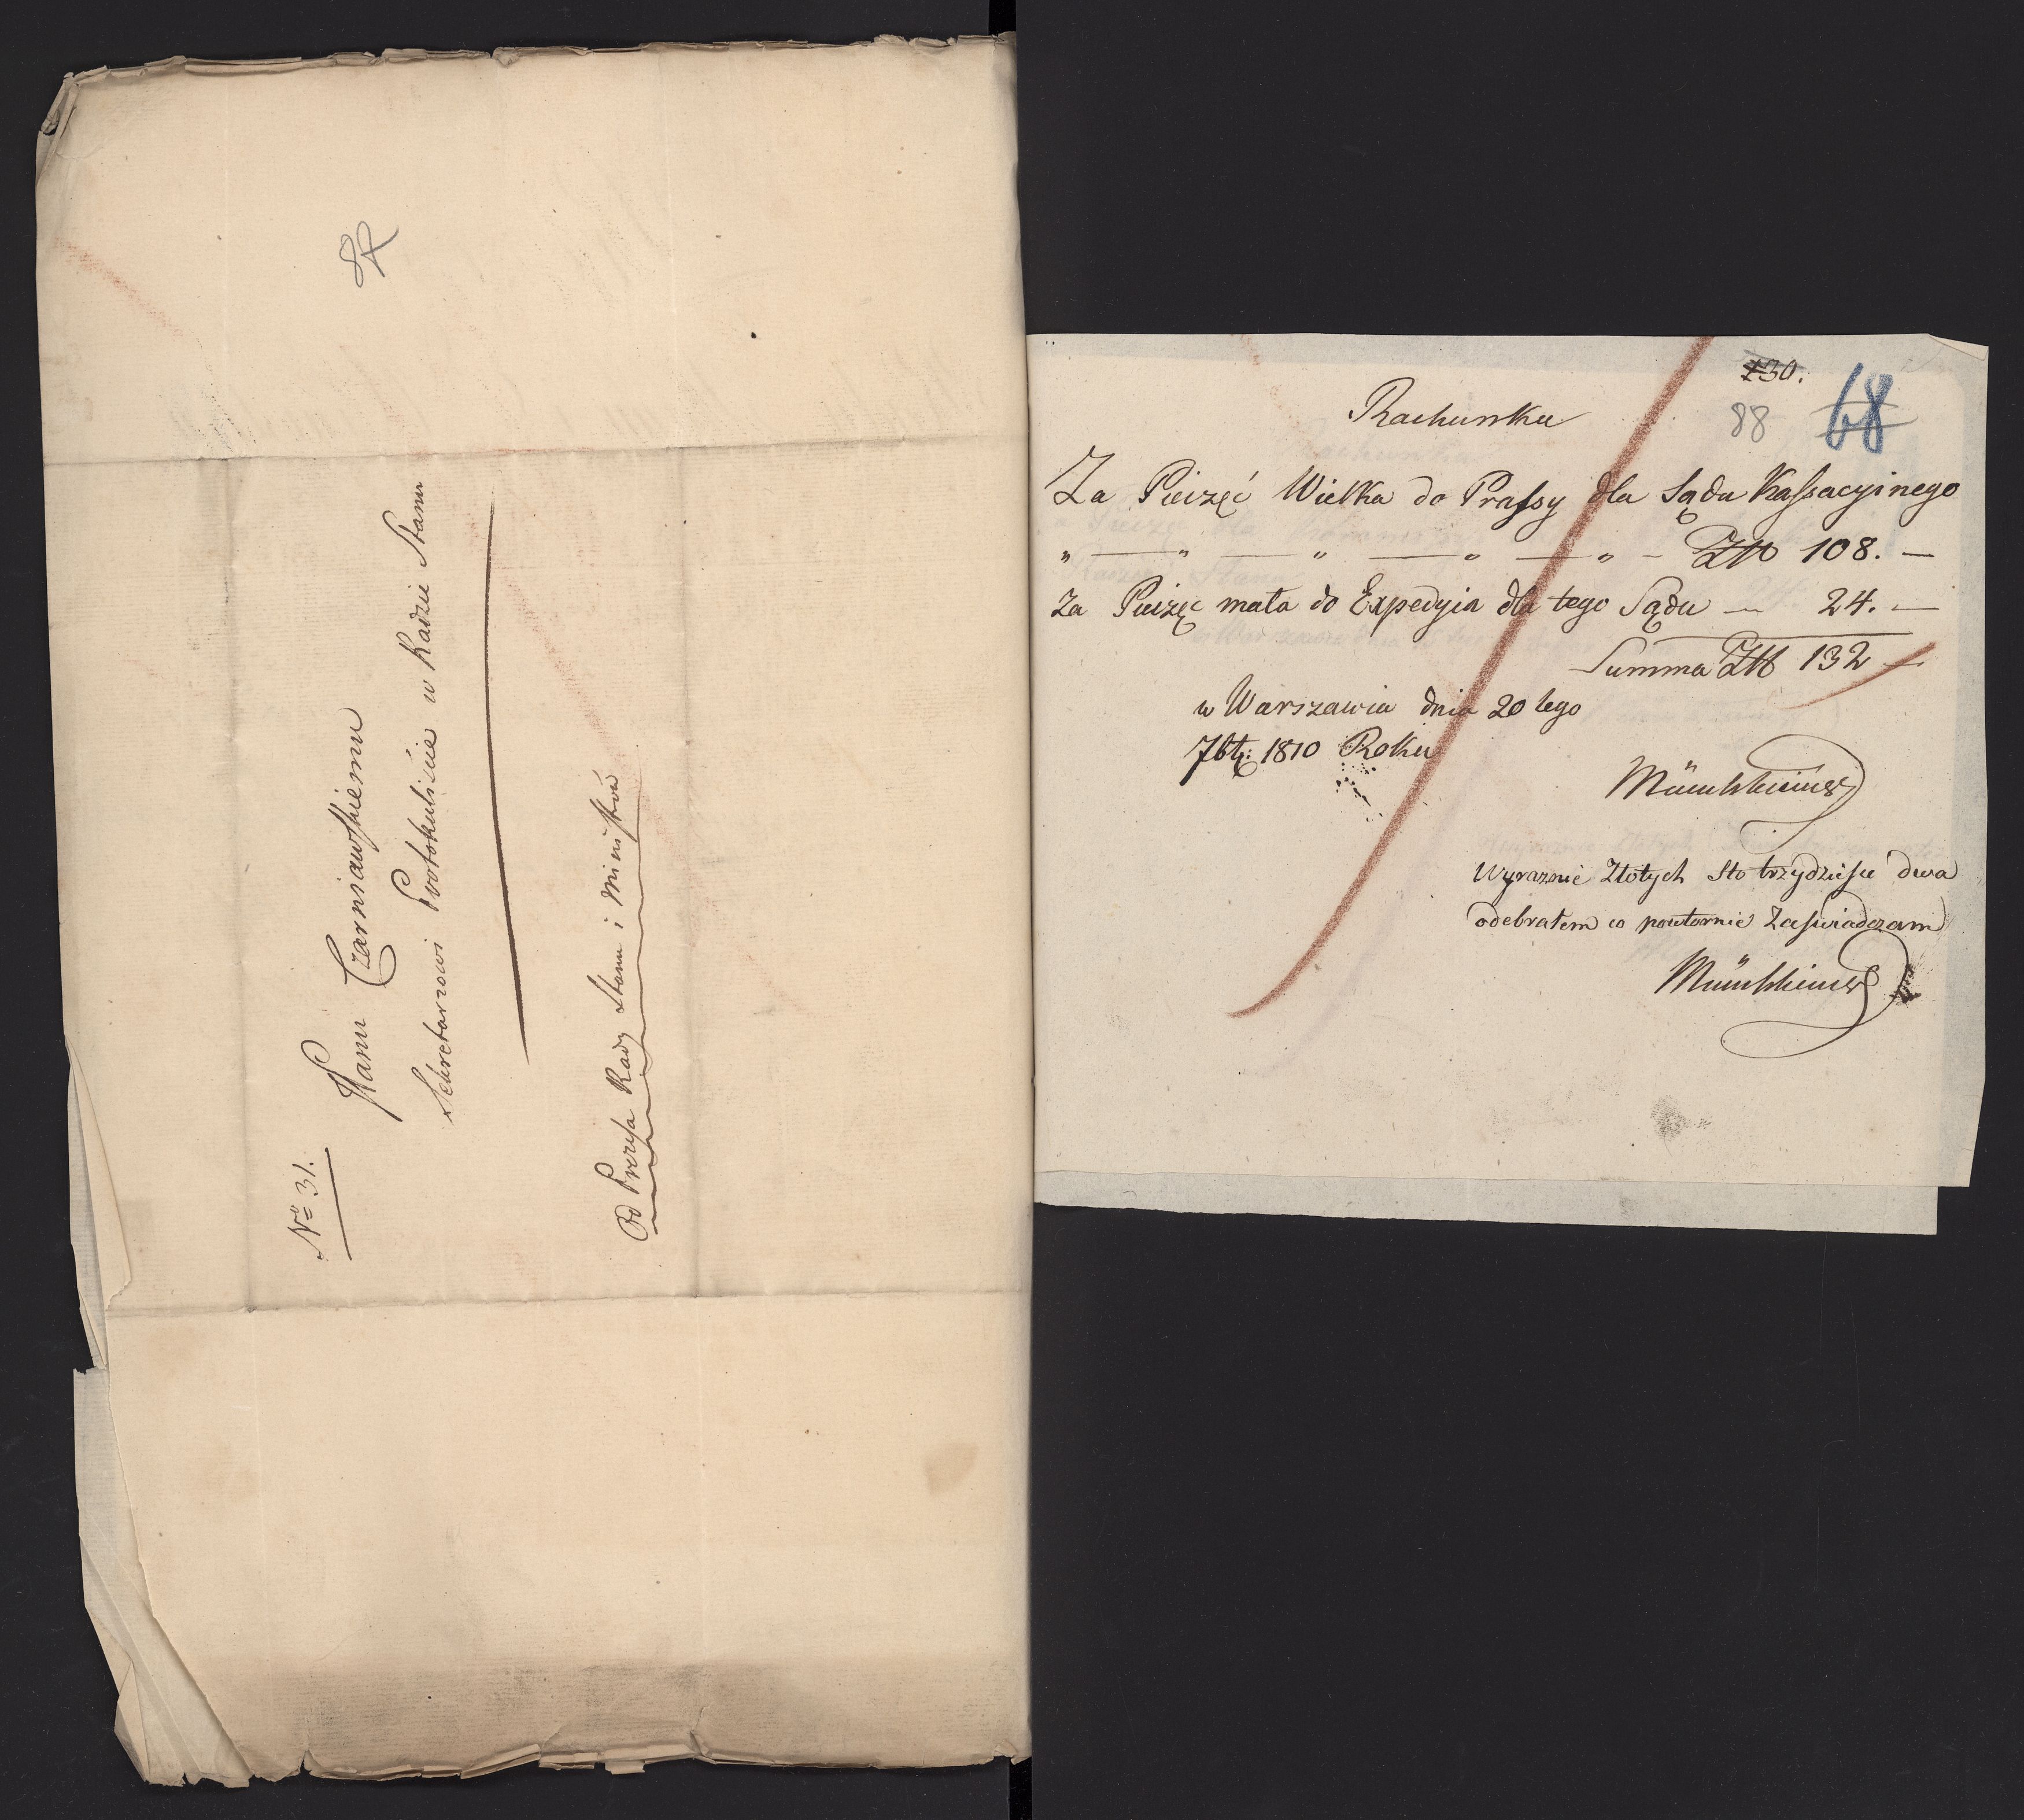 No 31.
Panu Czarniawskiemu
Sekretarzowi Protokuliście w Radzie Stanu
Od Prezesa Rady Stanu i Ministrów
130.
88 68
Rachunku
Za Pieizęć Wielka do Prassy dla Sądu Kassacyinego
" — " — " — " — " - Złł 108. —
Za Pieizęc mała do Expedyia dla tego Sądu — 24. —
Summa Złł 132 —
w Warszawia dnia 20 tego
7bę: 1810 Roku
Münchheimer
Wyraznie Złotych Sto trzydziesce dwa
odebrałem co powtornie Zaswiadczam
Münchheimer